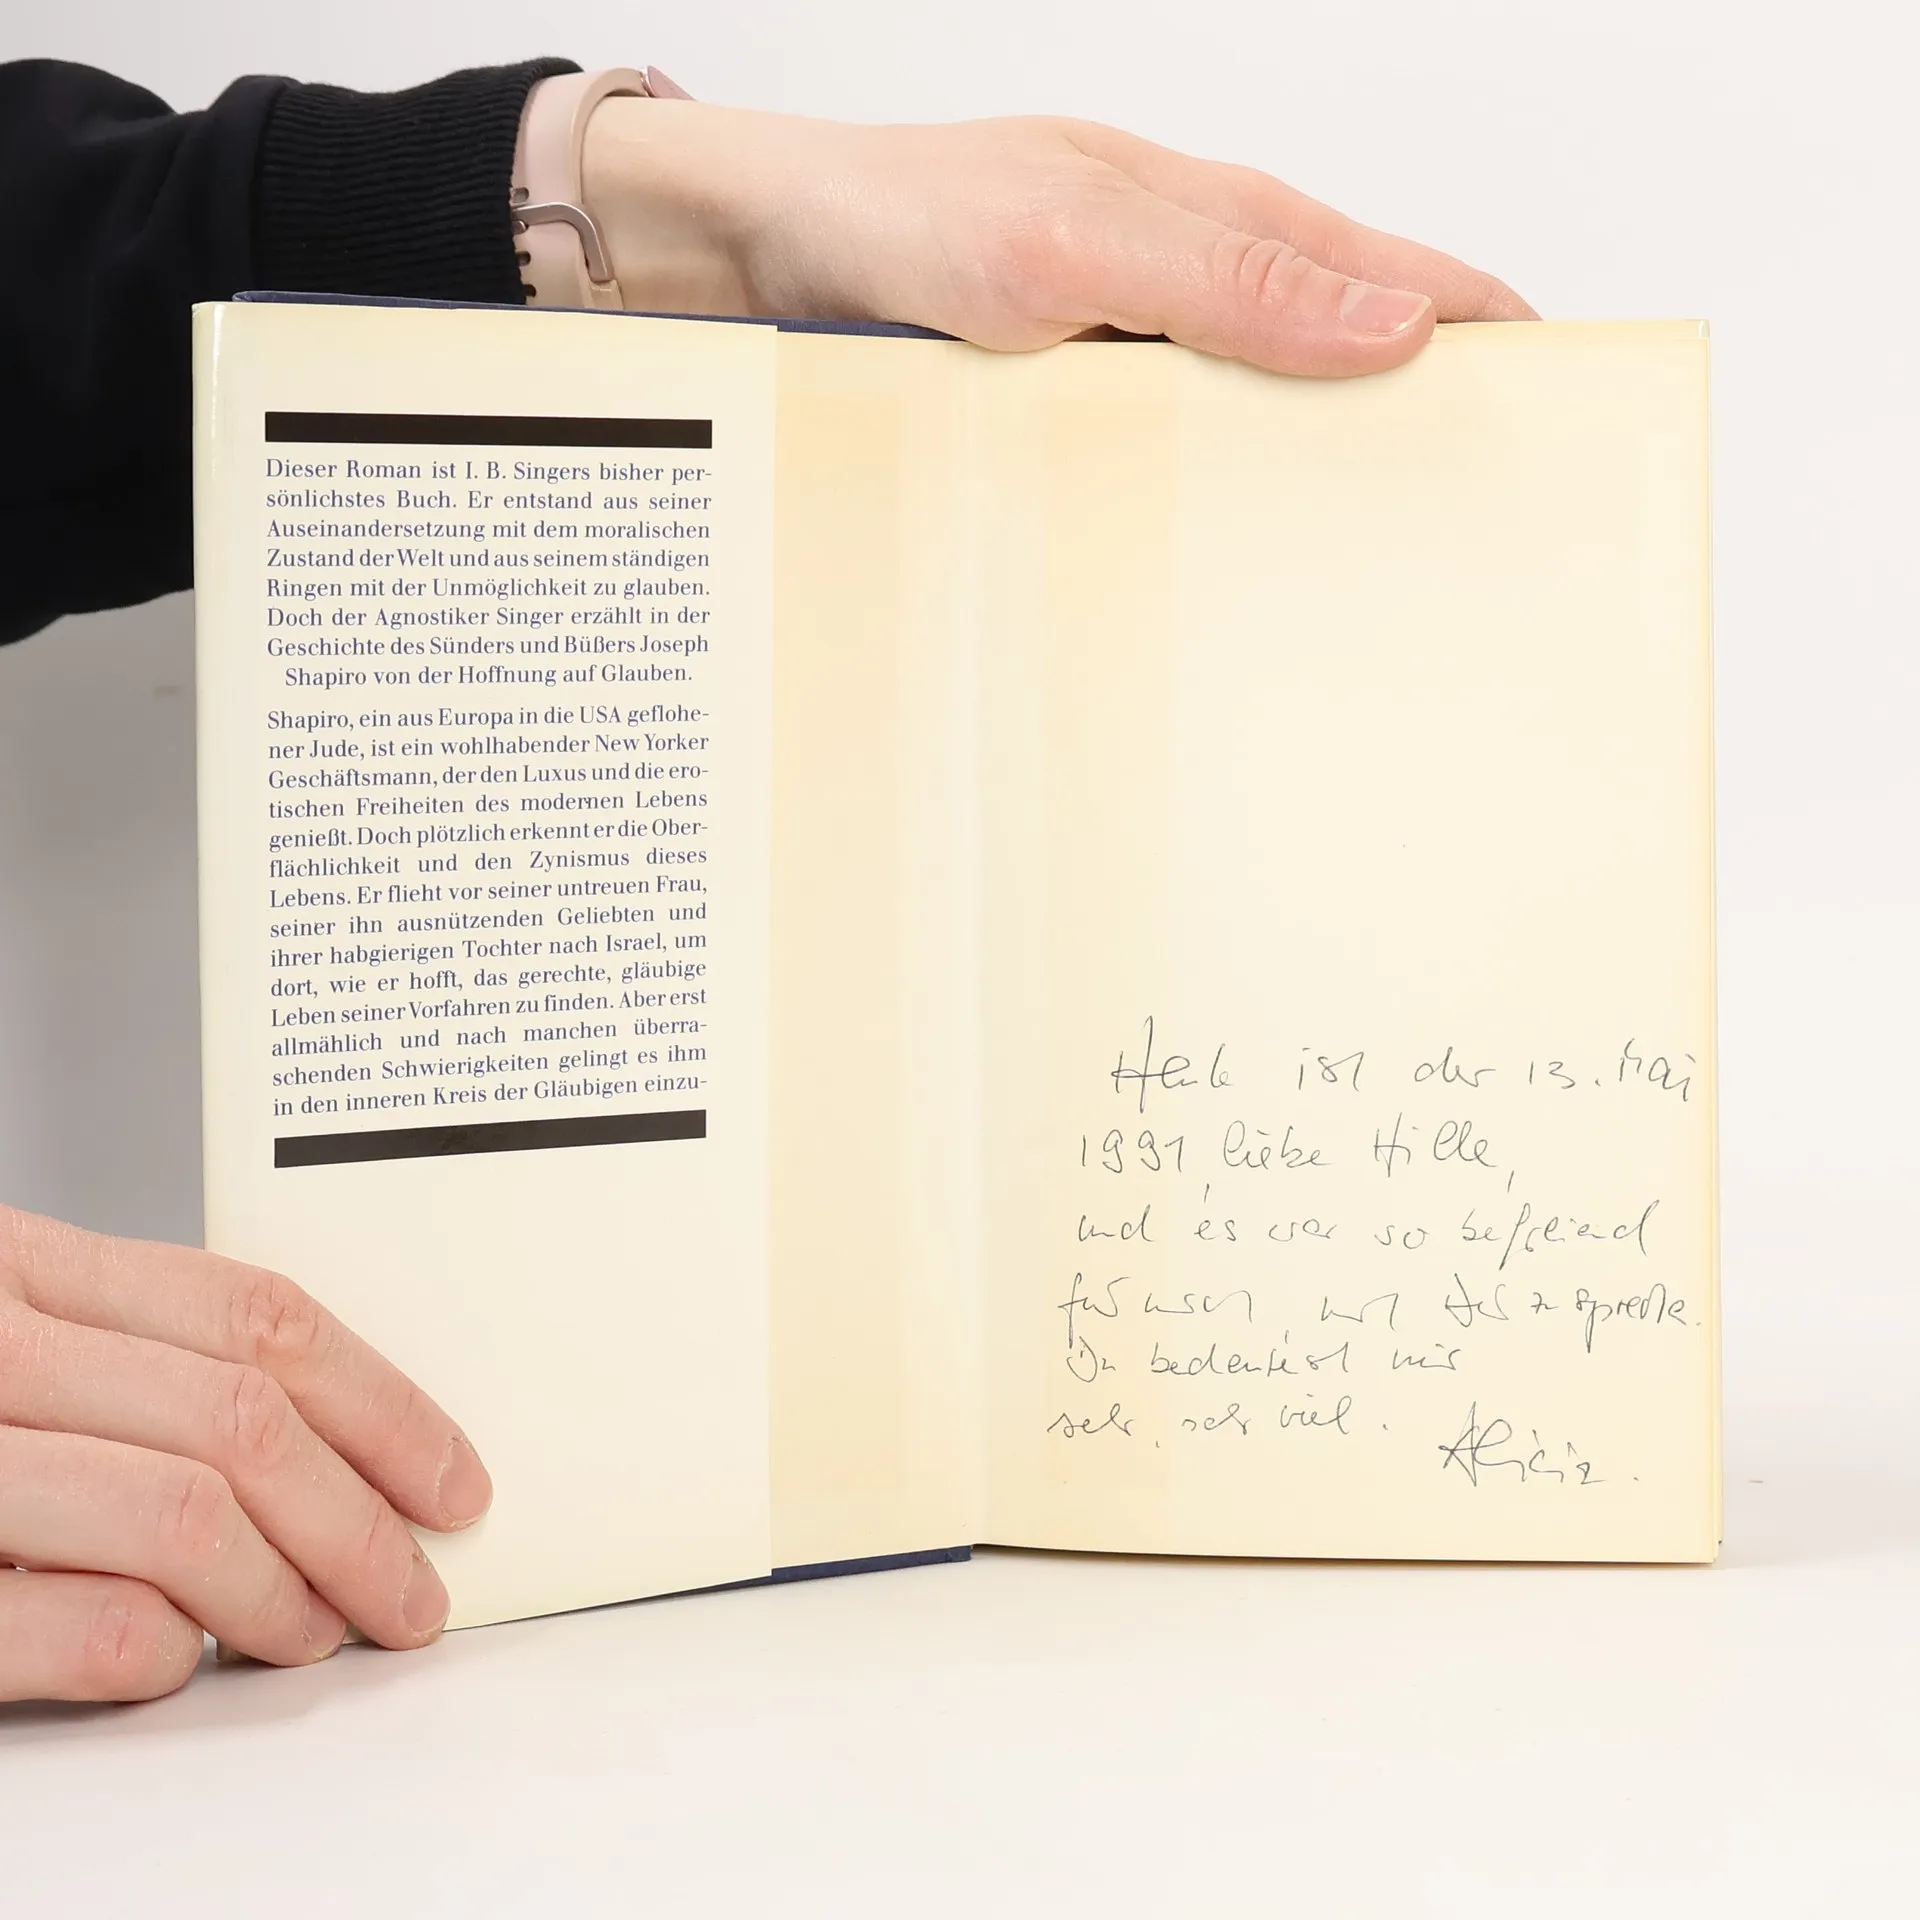 Dieser Roman ist I. B. Singers bisher per-
sönlichstes Buch. Er entstand aus seiner
Auseinandersetzung mit dem moralischen
Zustand der Welt und aus seinem ständigen
Ringen mit der Unmöglichkeit zu glauben.
Doch der Agnostiker Singer erzählt in der
Geschichte des Sünders und Büßers Joseph
Shapiro von der Hoffnung auf Glauben.
Shapiro, ein aus Europa in die USA geflohe-
ner Jude, ist ein wohlhabender New Yorker
Geschäftsmann, der den Luxus und die ero-
tischen Freiheiten des modernen Lebens
genießt. Doch plötzlich erkennt er die Ober-
flächlichkeit und den Zynismus dieses
Lebens. Er flieht vor seiner untreuen Frau,
seiner ihn ausnützenden Geliebten und
ihrer habgierigen Tochter nach Israel, um
dort, wie er hofft, das gerechte, gläubige
Leben seiner Vorfahren zu finden. Aber erst
allmählich und nach manchen überra-
schenden Schwierigkeiten gelingt es ihm
in den inneren Kreis der Gläubigen einzu-
Heute ist der 13. Mai
1991, liebe Hille,
und es war so befreiend
für mich, mit Dir zu sprechen.
Du bedeutest mir
sehr, sehr viel.
Alicia.